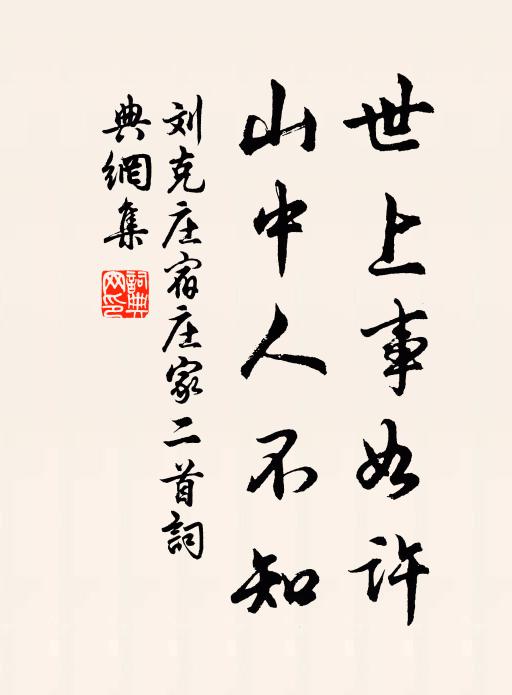 世上事如许
山中人不知
刘克庄宿庄家二首詞
典網集
詞典
网印